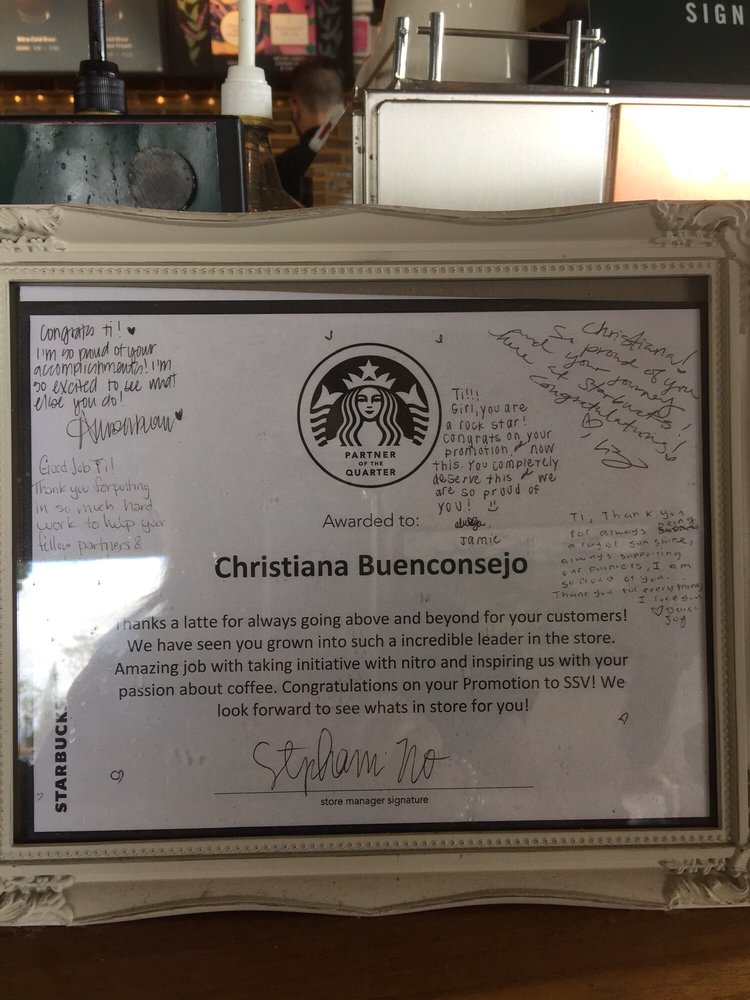 SIGN
Congrats Ti! ♥
I'm so proud of your
accomplishments! I'm
so excited to see what
else you do!
Good Job Ti!
Thank you for putting
in so much hard
work to help your
fellow partners &
PARTNER
OF THE
QUARTER
Ti!!!
Girl, you are
a rock star!
Congrats on your
promotion, & now
this. You completely
deserve this & we
are so proud of
you!
Jamie
Christiana!
So proud of you
and your journey
here at Starbucks!
Congratulations!
Liz
Ti, Thank you
for always being
a ray of sunshine,
always supporting
our partners, I am
so proud of you.
Thank you for everything
I love you
Joy
Awarded to:
Christiana Buenconsejo
Thanks a latte for always going above and beyond for your customers!
We have seen you grown into such a incredible leader in the store.
Amazing job with taking initiative with nitro and inspiring us with your
passion about coffee. Congratulations on your Promotion to SSV! We
look forward to see whats in store for you!
Stephani No
store manager signature
STARBUCKS